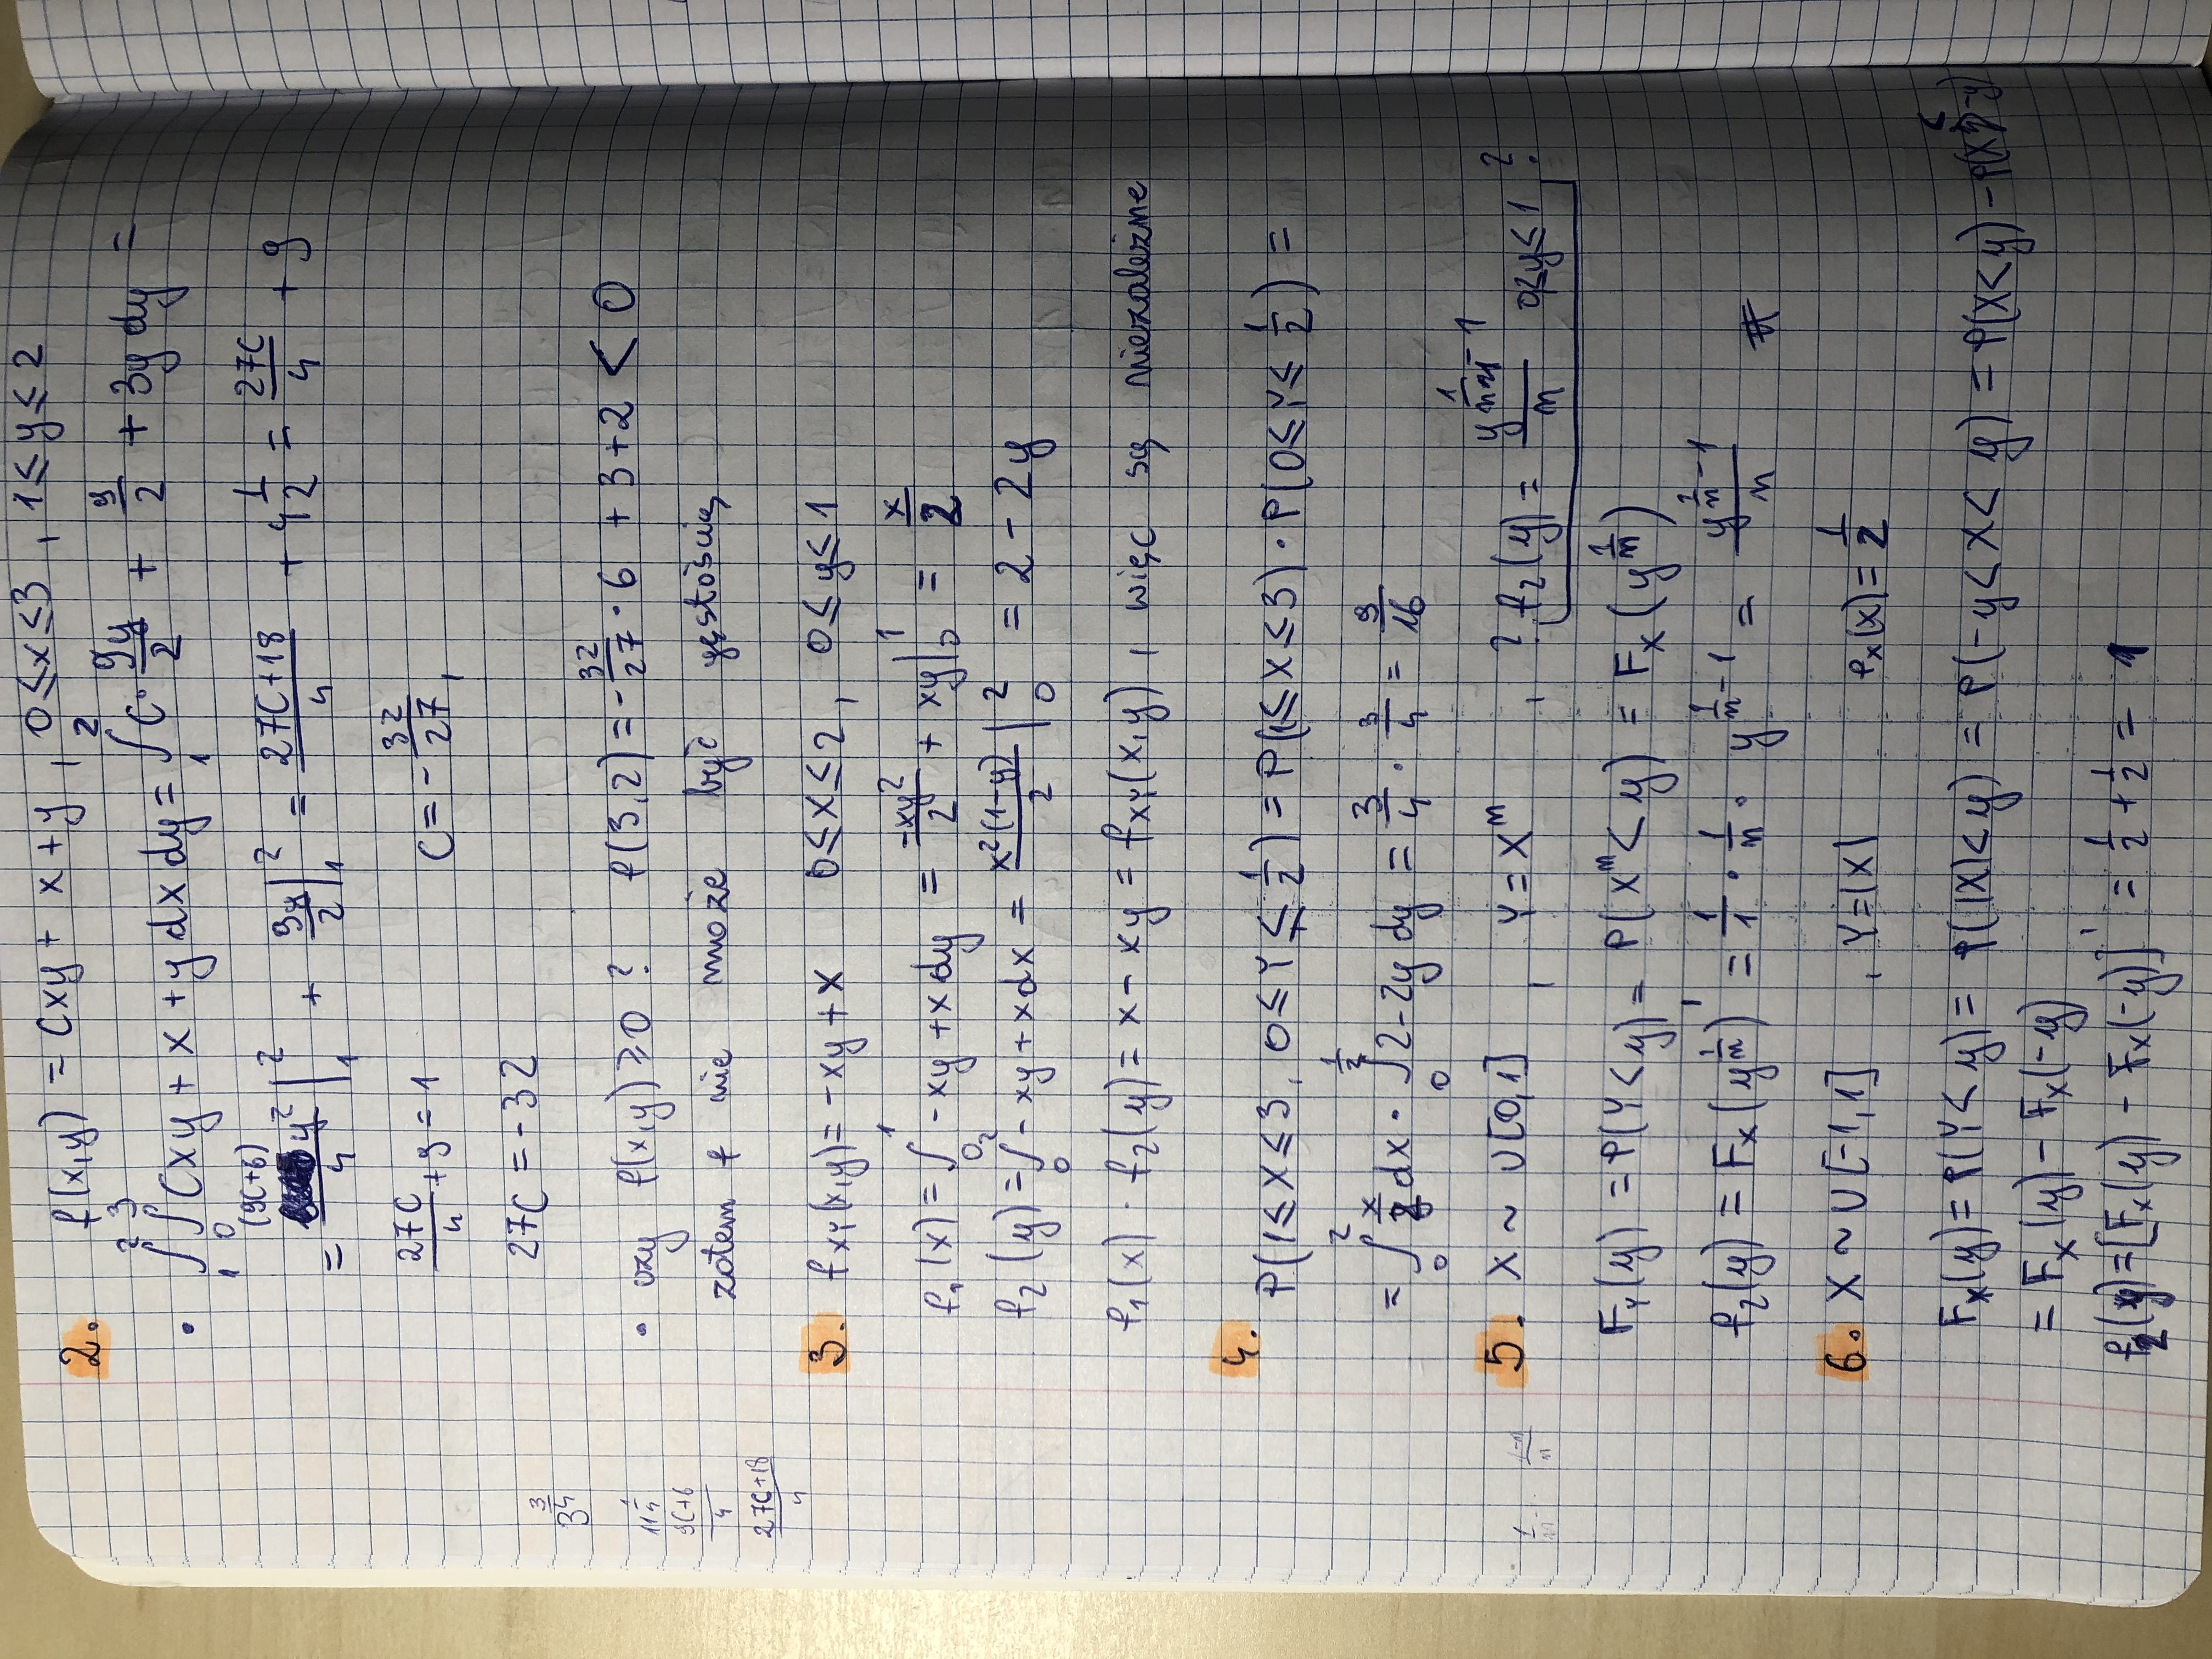 2. f(x,y) = Cxy + x + y , 0≤x≤3 , 1≤y≤2
• ∫₁² ∫₀³ Cxy + x + y dx dy = ∫₁² C·9y/2 + 9/2 + 3y dy =
= (9C+6)y²/4 |₁² + 9y/2 |₁² = (27C+18)/4 + 4 1/2 = 27C/4 + 9
27C/4 + 9 = 1 C = -32/27,
27C = -32
3 3/4
11 1/4
(9C+6)/4
(27C+18)/4
• czy f(x,y) ≥ 0 ? f(3,2) = -32/27 · 6 + 3 + 2 < 0
zatem f nie może być gęstością
3. f_XY(x,y) = -xy + x 0≤x≤2 , 0≤y≤1
f₁(x) = ∫₀¹ -xy + x dy = -xy²/2 + xy |₀¹ = x/2
f₂(y) = ∫₀² -xy + x dx = x²(1-y)/2 |₀² = 2 - 2y
f₁(x) · f₂(y) = x - xy = f_XY(x,y) , więc są niezależne
4.
P(1≤X≤3, 0≤Y≤1/2) = P(1≤X≤3) · P(0≤Y≤1/2) =
= ∫₀² x/2 dx · ∫₀^(1/2) 2-2y dy = 3/4 · 3/4 = 9/16
5. X ~ U[0,1] , Y = Xⁿ , ? f₂(y) = y^(1/n - 1)/n 0≤y≤1 ?
F_Y(y) = P(Y<y) = P(Xⁿ < y) = F_X(y^(1/n))
f₂(y) = F_X(y^(1/n))' = 1/1 · 1/n · y^(1/n - 1) = y^(1/n - 1)/n #
6. X ~ U[-1,1] , Y=|X| f_X(x) = 1/2
F_X(y) = P(Y<y) = P(|X|<y) = P(-y<X<y) = P(X<y) - P(X<-y)
= F_X(y) - F_X(-y)
f₂(y) = [F_X(y) - F_X(-y)]' = 1/2 + 1/2 = 1